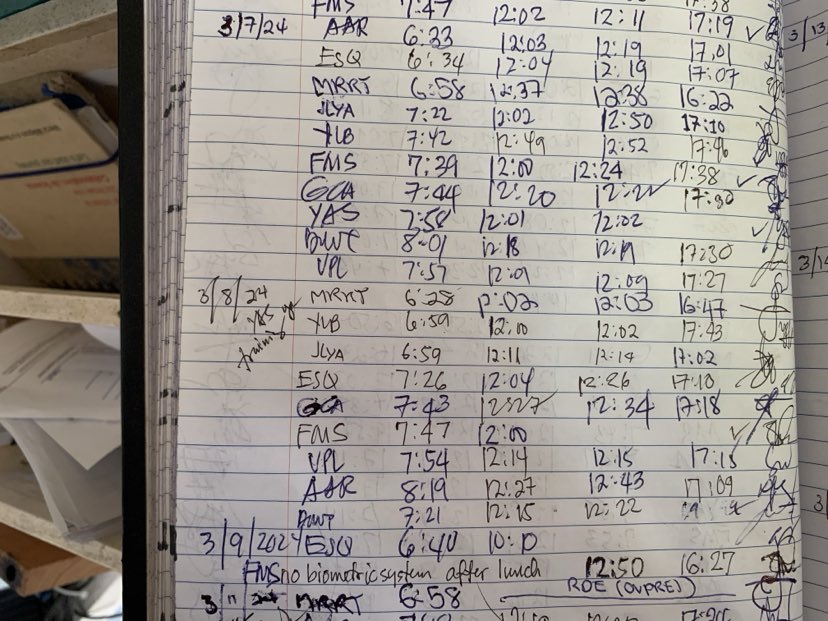 FMS 7:47 12:02 12:11 17:19
3/7/24 AAR 6:33 12:03 12:19 17,01
ESQ 6:34 12:04 12:19 17:07
MRRT 6:58 12:37 12:38 16:22
JLYA 7:22 12:02 12:50 17:10
YLB 7:42 12:49 12:52 17:46
FMS 7:39 12:00 12:24 17:38
GCA 7:44 12:20 17:30
YAS 7:58 12:01 12:02
8:01 12:18 12:19 17:30
VPL 7:57 12:01 12:09 17:27
3/8/24 MRRT 6:28 12:02 12:03 16:47
YLB 6:59 12:10 12:02 17:43
JLYA 6:59 12:11 12:14 17:02
ESQ 7:26 12:04 12:26 17:10
GCA 7:43 12:27 12:34 17:18
FMS 7:47 12:00
VPL 7:54 12:14 12:15 17:15
AAR 8:19 12:27 12:43 17:09
7:21 12:15 12:22
3/9/2024 ESQ 6:40 10:10
FMS no biometric system after lunch 12:50 16:27
3/11 MRRT 6:58
3/13